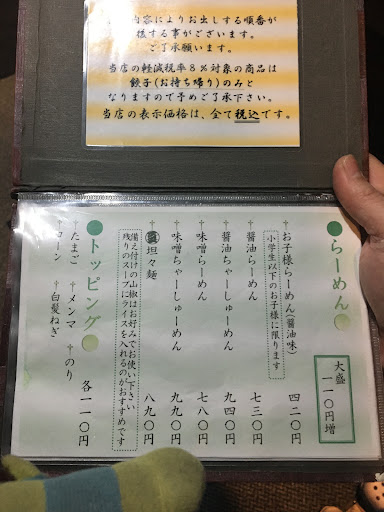 内容によりお出しする順番が
する事がございます。
ご了承願います。
当店の軽減税率８％対象の商品は
餃子(お持ち帰り)のみと
なりますので予めご了承下さい。
当店の表示価格は、全て税込です。
らーめん
大盛
一一〇円増
お子様らーめん(醤油味) 四二〇円
小学生以下のお子様に限ります
醤油らーめん 七三〇円
醤油ちゃーしゅーめん 九四〇円
味噌らーめん 七八〇円
味噌ちゃーしゅーめん 九九〇円
坦々麺 八九〇円
備え付けの山椒はお好みでお使い下さい
残りのスープにライスを入れるのがおすすめです
トッピング
たまご メンマ のり 各一一〇円
コーン 白髪ねぎ